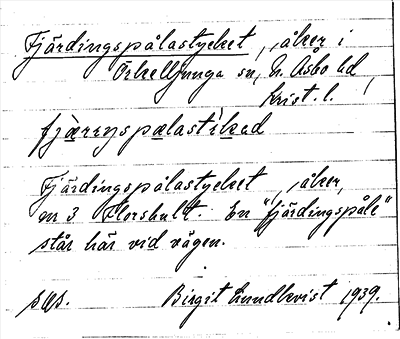 Fjärdingspålastycket, åker i
Örkelljunga sn, N. Åsbo hd
Krist. l.
Fjärdingspålastycket, åker,
m 3 Florshult. En "fjärdingspåle"
står här vid vägen.
Birgit Lundkvist 1939.